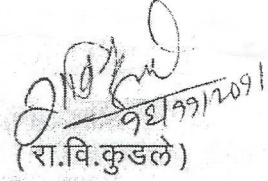 १६/११/२०११
(रा.वि.कुडले)